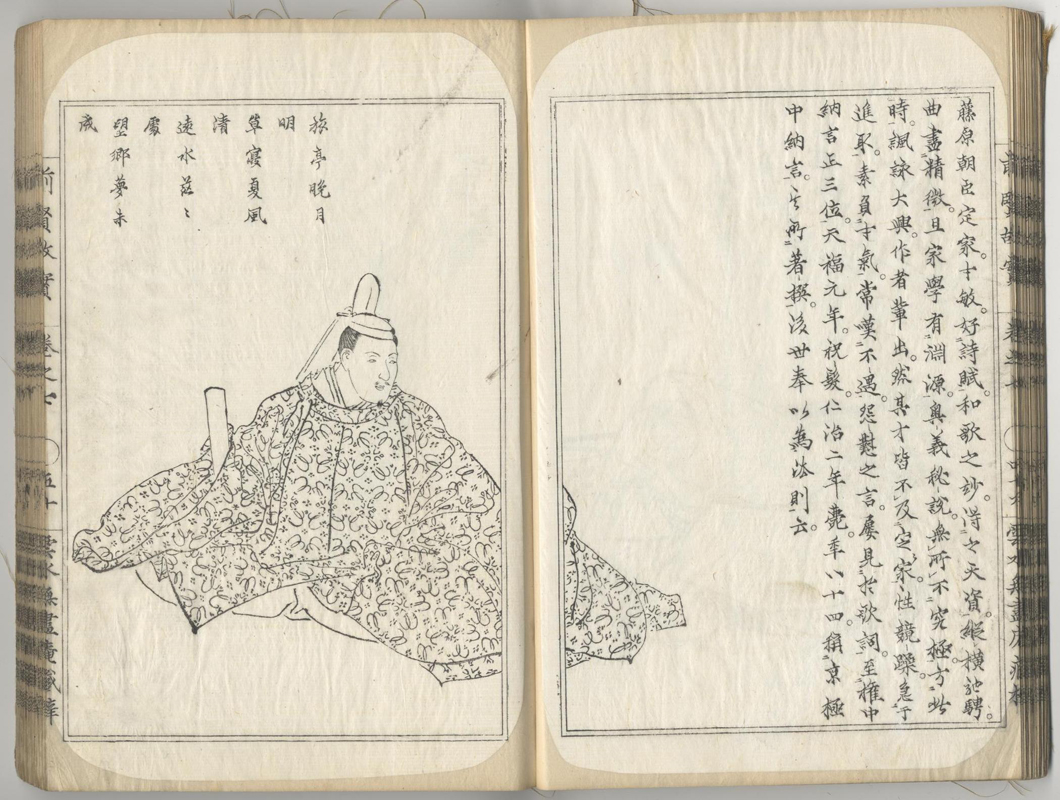 藤原朝臣定家。才敏。好詩賦和歌之妙。得之天資。縱横馳騁。
曲盡精微。且家學有淵源。奧義秘說。無所不究極。方此
時。諷詠大興。作者輩出。然其才皆不及定家。性競躁急于
進取。素負才氣。常嘆不遇。怨懟之言。屢見於歌詞。至權中
納言正三位。天福元年。祝髮。仁治二年薨。年八十四。稱京極
中納言。其所著撰。後世奉以為法則云。
旅亭晚月
明
草寢夏風
清
遠水茫々
處
望鄉夢未
成
前賢故實 卷之七 五十 雲水無盡庵藏梓
前賢故實 卷之七